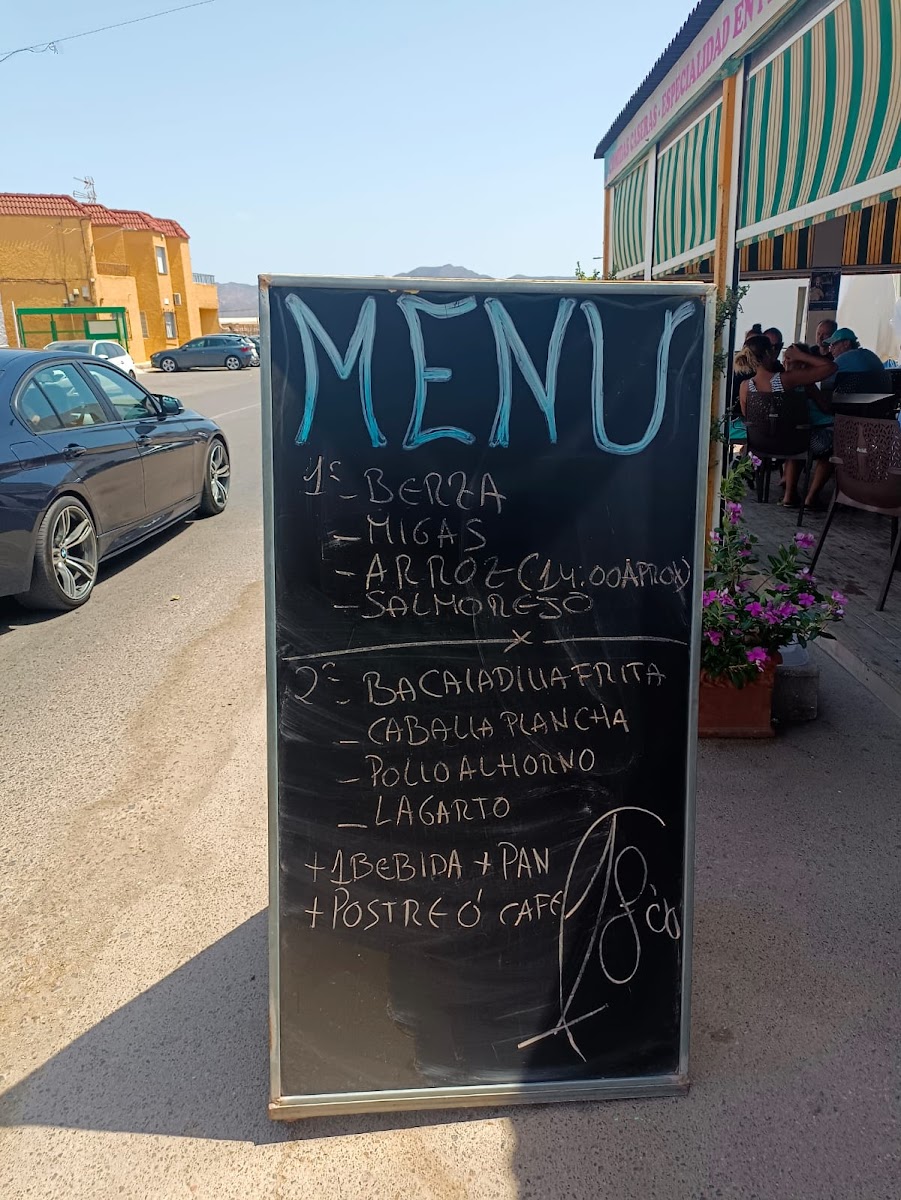 COMIDAS CASERAS - ESPECIALIDAD EN
MENU
1º- BERZA
- MIGAS
- ARROZ (14:00 APROX)
- SALMOREJO
2º- BACALADILLA FRITA
- CABALLA PLANCHA
- POLLO AL HORNO
- LAGARTO
+ 1 BEBIDA + PAN
+ POSTRE Ó CAFE